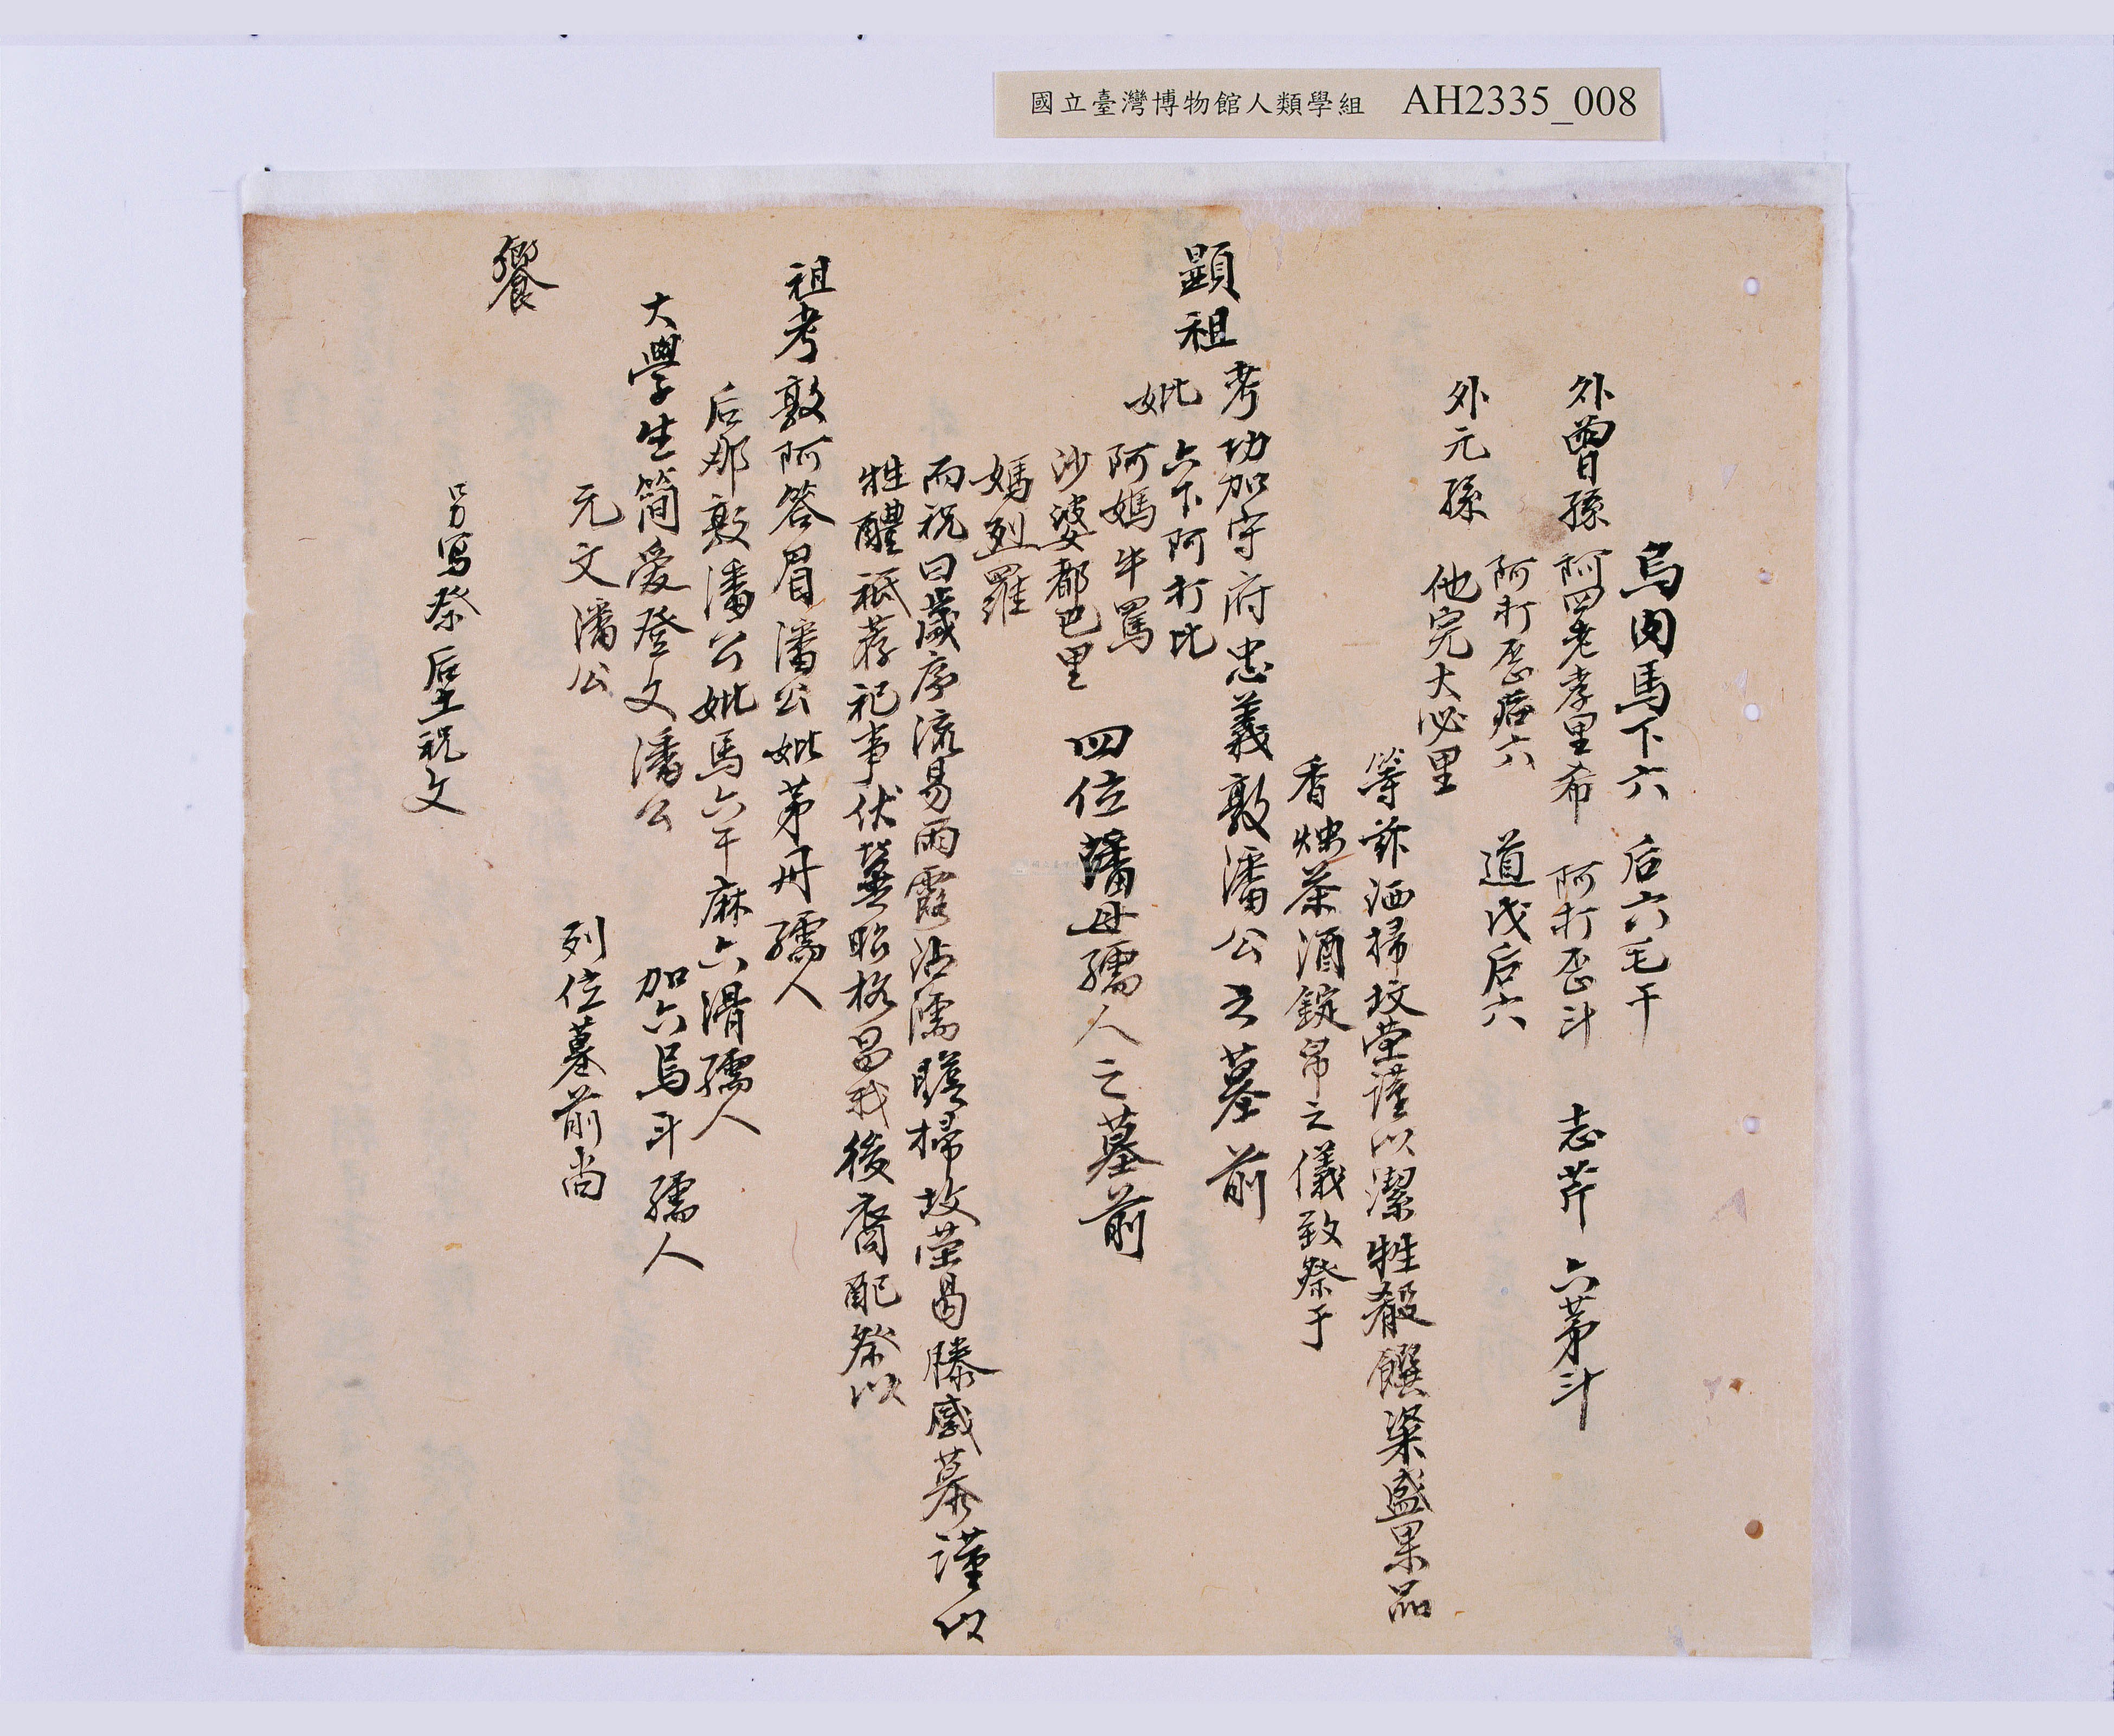 國立臺灣博物館人類學組 AH2335_008
烏肉馬下六 后六毛干
外曾孫 阿四老孝里希 阿打歪斗 志芹 六茅斗
阿打歪㾗六 道戊后六
外元孫 他完大必里
等詐洒掃坟塋謹以潔牲殽饌粢盛果品
香烛茶酒錠帛之儀致祭于
顯祖考功加守府忠義敦潘公之墓前
妣 六下阿打比
阿媽牛罵
沙婆都巴里 四位潘母孺人之墓前
媽列羅
而祝曰歲序流易雨露沾濡瞻掃坟塋曷勝感慕謹以
牲醴祇荐祀事伏冀昭格昌我後裔配祭以
祖考敦阿答眉潘公妣茅丹孺人
后那敦潘公妣馬六干麻六滑孺人
大學生簡愛登文潘公 加六烏斗孺人
元文潘公 列位墓前尚
饗
另写祭后土祝文